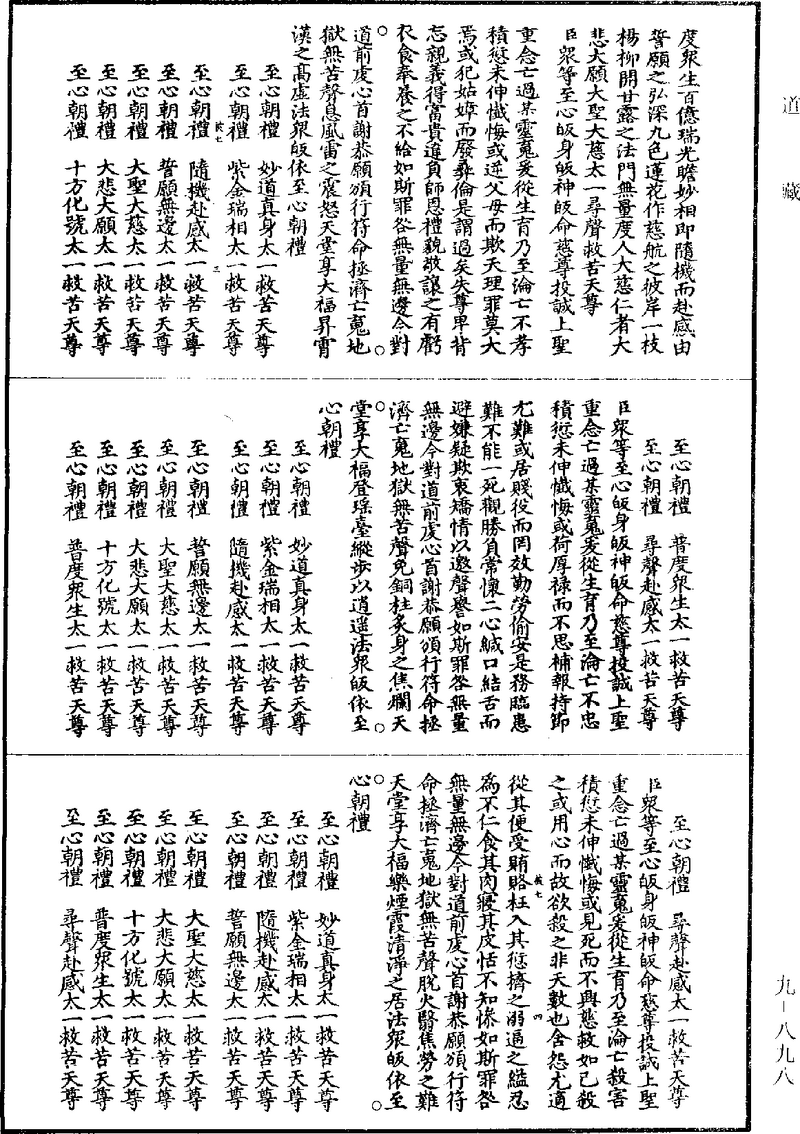 道藏
度衆生百億瑞光瞻妙相即隨機而赴感由
誓願之弘深九色蓮花作慈航之彼岸一枝
楊柳開甘露之法門無量度人大慈仁者大
悲大願大聖大慈太一尋聲救苦天尊
臣衆等至心皈身皈神皈命慈尊投誠上聖
重念亡過某靈䰟爰從生育乃至淪亡不孝
積愆未伸懺悔或逆父母而欺天理罪莫大
焉或犯姑嫜而廢彝倫是謂過矣失尊卑背
忘親義得富貴違負師恩禮貌敬讓之有虧
衣食奉養之不給如斯罪咎無量無邊今對
道前虔心首謝恭願頒行符命拯濟亡䰟地
獄無苦聲息風雷之震怒天堂享大福昇霄
漢之高虛法衆皈依至心朝禮
至心朝禮 妙道真身太一救苦天尊
至心朝禮 紫金瑞相太一救苦天尊
至心朝禮 隨機赴感太一救苦天尊
至心朝禮 誓願無邊太一救苦天尊
至心朝禮 大聖大慈太一救苦天尊
至心朝禮 大悲大願太一救苦天尊
至心朝禮 十方化號太一救苦天尊
至心朝禮 普度衆生太一救苦天尊
至心朝禮 尋聲赴感太一救苦天尊
臣衆等至心皈身皈神皈命慈尊投誠上聖
重念亡過某靈䰟爰從生育乃至淪亡不忠
積愆未伸懺悔或荷厚祿而不思補報持節
尤難或居賤役而罔效勤勞偷安是務臨患
難不能一死觀勝負常懷二心緘口結舌而
避嫌疑欺衷矯情以邀聲譽如斯罪咎無量
無邊今對道前虔心首謝恭願頒行符命拯
濟亡䰟地獄無苦聲免銅柱炙身之焦爛天
堂享大福登瑤臺縱步以逍遥法衆皈依至
心朝禮
至心朝禮 妙道真身太一救苦天尊
至心朝禮 紫金瑞相太一救苦天尊
至心朝禮 隨機赴感太一救苦天尊
至心朝禮 誓願無邊太一救苦天尊
至心朝禮 大聖大慈太一救苦天尊
至心朝禮 大悲大願太一救苦天尊
至心朝禮 十方化號太一救苦天尊
至心朝禮 普度衆生太一救苦天尊
至心朝禮 尋聲赴感太一救苦天尊
臣衆等至心皈身皈神皈命慈尊投誠上聖
重念亡過某靈䰟爰從生育乃至淪亡殺害
積愆未伸懺悔或見死而不興慈救如已殺
之或用心而故欲殺之非天數也舍怨尤適
從其便受賄賂枉入其愆擠之溺逼之縊忍
爲不仁食其肉寢其皮恬不知慘如斯罪咎
無量無邊今對道前虔心首謝恭願頒行符
命拯濟亡䰟地獄無苦聲脱火翳焦勞之難
天堂享大福樂煙霞清淨之居法衆皈依至
心朝禮
至心朝禮 妙道真身太一救苦天尊
至心朝禮 紫金瑞相太一救苦天尊
至心朝禮 隨機赴感太一救苦天尊
至心朝禮 誓願無邊太一救苦天尊
至心朝禮 大聖大慈太一救苦天尊
至心朝禮 大悲大願太一救苦天尊
至心朝禮 十方化號太一救苦天尊
至心朝禮 普度衆生太一救苦天尊
至心朝禮 尋聲赴感太一救苦天尊
九－八九八